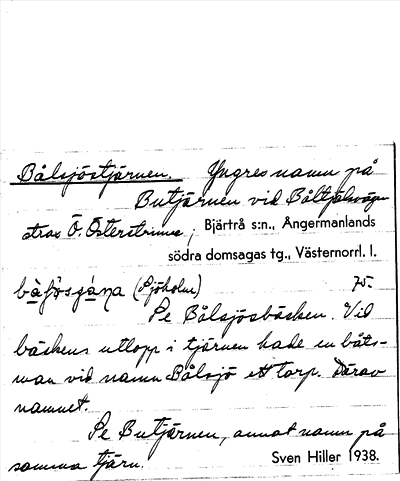 Bålsjöstjärnen. Yngres namn på
Butjärnen vid Båltjälvägen
strax Ö. Österstrinne, Bjärtrå s:n., Ångermanlands
södra domsagas tg., Västernorrl. l.
(Sjöholm) 75.
Se Bålsjösbäcken. Vid
bäckens utlopp i tjärnen hade en båts-
man vid namn Bålsjö ett torp. Därav
namnet.
Se Butjärnen, annat namn på
samma tjärn. Sven Hiller 1938.